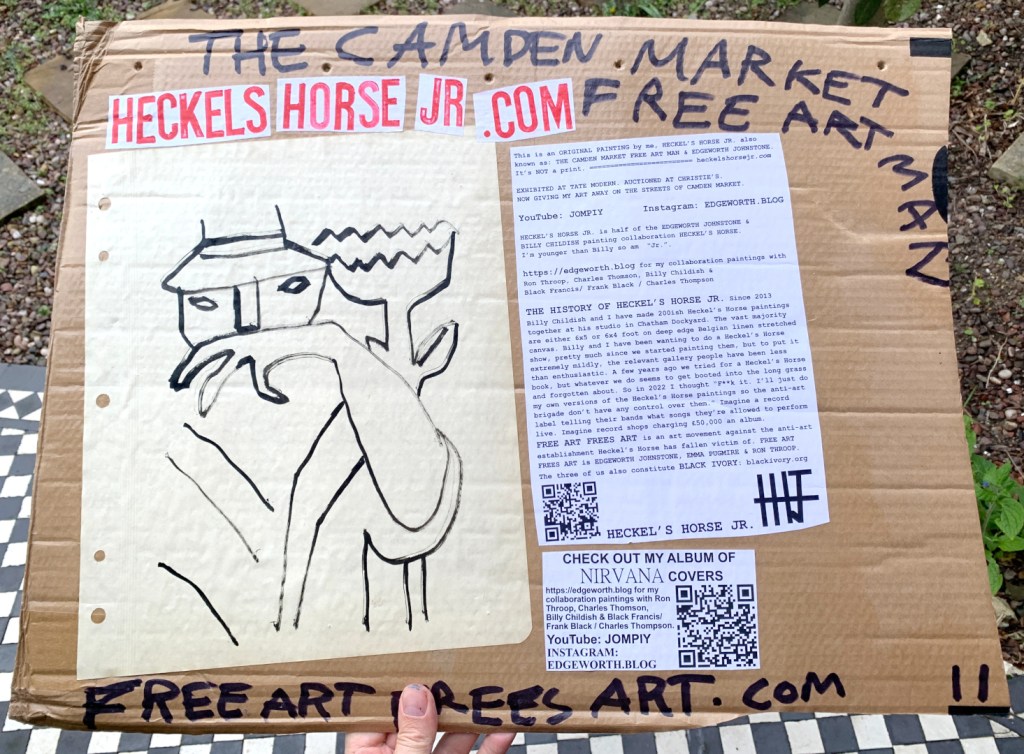 THE CAMDEN MARKET
FREE ART
MAN
HECKELS HORSE JR .COM
This is an ORIGINAL PAINTING by me, HECKEL'S HORSE JR. also
known as: THE CAMDEN MARKET FREE ART MAN & EDGEWORTH JOHNSTONE.
It's NOT a print. ========================= heckelshorsejr.com
EXHIBITED AT TATE MODERN. AUCTIONED AT CHRISTIE'S.
NOW GIVING MY ART AWAY ON THE STREETS OF CAMDEN MARKET.
YouTube: JOMPIY Instagram: EDGEWORTH.BLOG
HECKEL'S HORSE JR. is half of the EDGEWORTH JOHNSTONE &
BILLY CHILDISH painting collaboration HECKEL'S HORSE.
I'm younger than Billy so am "Jr.".
https://edgeworth.blog for my collaboration paintings with
Ron Throop, Charles Thomson, Billy Childish &
Black Francis/ Frank Black / Charles Thompson
THE HISTORY OF HECKEL'S HORSE JR. Since 2013
Billy Childish and I have made 200ish Heckel's Horse paintings
together at his studio in Chatham Dockyard. The vast majority
are either 6x5 or 6x4 foot on deep edge Belgian linen stretched
canvas. Billy and I have been wanting to do a Heckel's Horse
show, pretty much since we started painting them, but to put it
extremely mildly, the relevant gallery people have been less
than enthusiastic. A few years ago we tried for a Heckel's Horse
book, but whatever we do seems to get booted into the long grass
and forgotten about. So in 2022 I thought "F**k it. I'll just do
my own versions of the Heckel's Horse paintings so the anti-art
brigade don't have any control over them." Imagine a record
label telling their bands what songs they're allowed to perform
live. Imagine record shops charging £50,000 an album.
FREE ART FREES ART is an art movement against the anti-art
establishment Heckel's Horse has fallen victim of. FREE ART
FREES ART is EDGEWORTH JOHNSTONE, EMMA PUGMIRE & RON THROOP.
The three of us also constitute BLACK IVORY: blackivory.org
HECKEL'S HORSE JR.
CHECK OUT MY ALBUM OF
NIRVANA COVERS
https://edgeworth.blog for my
collaboration paintings with Ron
Throop, Charles Thomson,
Billy Childish & Black Francis/
Frank Black / Charles Thompson.
YouTube: JOMPIY
INSTAGRAM:
EDGEWORTH.BLOG
FREE ART FREES ART.COM
11